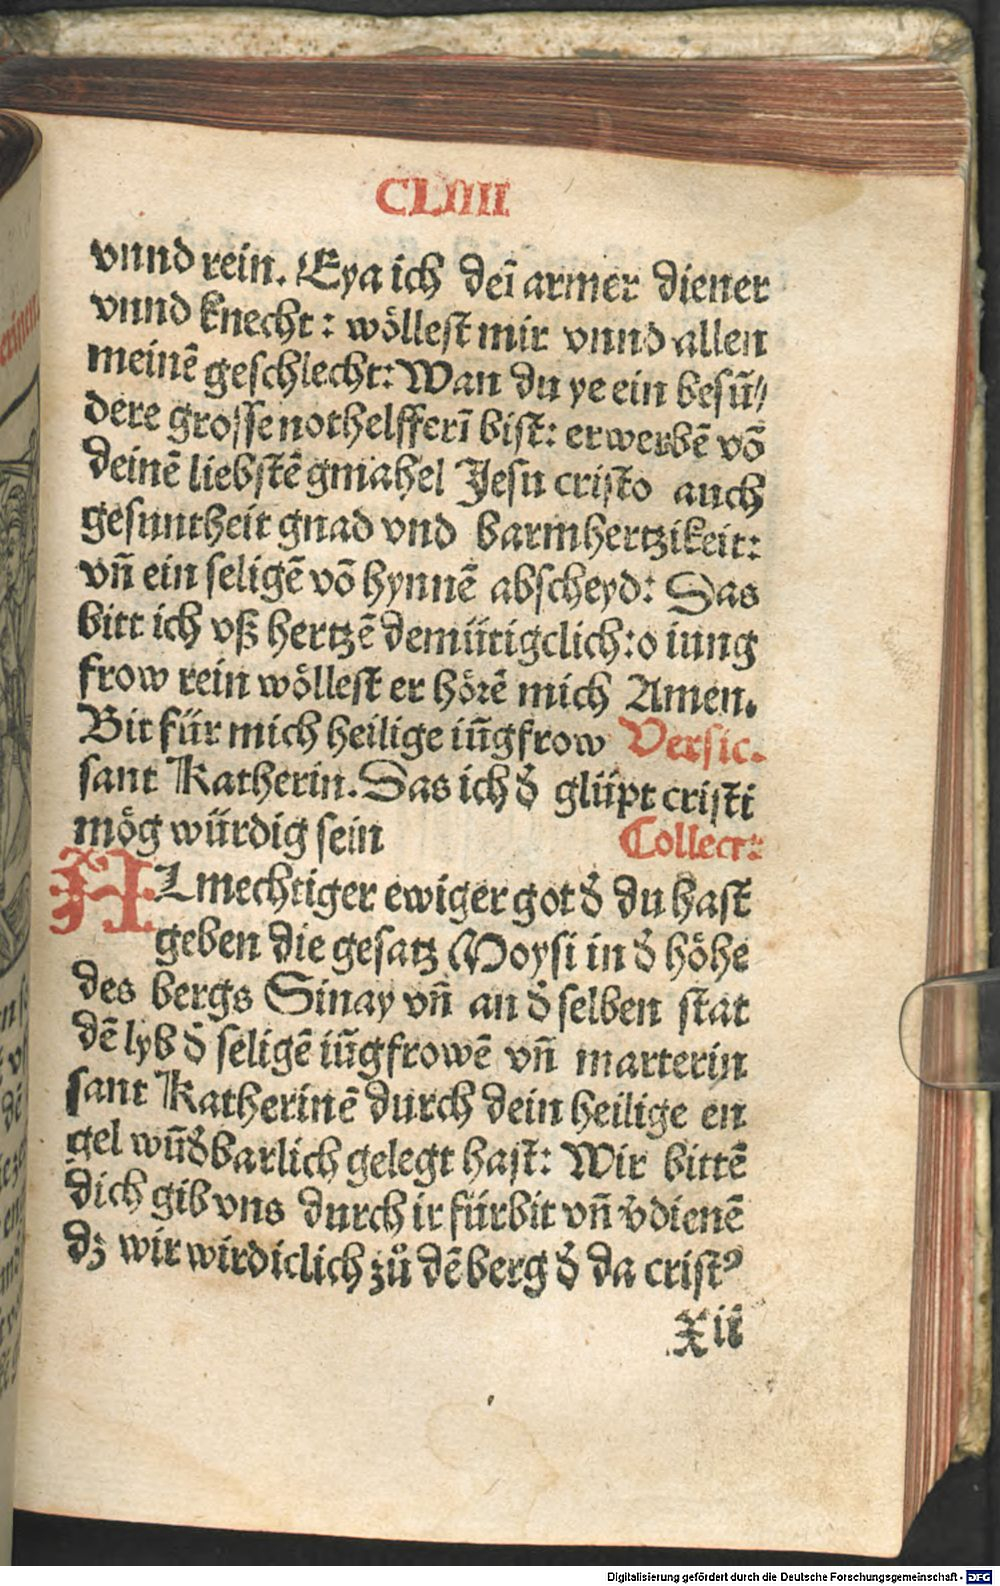 CLIIII
vnnd rein. Eya ich deī armer diener
vnnd knecht: wöllest mir vnnd allen
meinē geschlecht: Wan du ye ein besū⸗
dere grosse nothelfferī bist: erwerbē vō
deinē liebstē gmahel Jesu cristo auch
gesuntheit gnad vnd barmhertzikeit:
vñ ein seligē vō hynnē abscheyd: Das
bitt ich vß hertzē demütigclich: o iung
frow rein wöllest er hörē mich Amen.
Bit für mich heilige iūgfrow Versic.
sant Katherin. Das ich d̄ glüpt cristi
mög würdig sein Collect:
ALmechtiger ewiger got d̄ du hast
geben die gesatz Moysi in d̄ höhe
des bergs Sinay vñ an d̄ selben stat
dē lyb d̄ seligē iūgfrowē vñ marterin
sant Katherinē durch dein heilige en
gel wūd̄barlich gelegt hast: Wir bittē
dich gib vns durch ir fürbit vñ v̄dienē
dz wir wirdiclich zů dē berg d̄ da cristꝰ
Xii
Digitalisierung gefördert durch die Deutsche Forschungsgemeinschaft - DFG